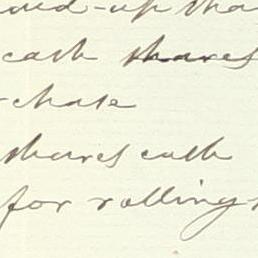 -up tha
cash shares
-chase
shares cash
for rolling-